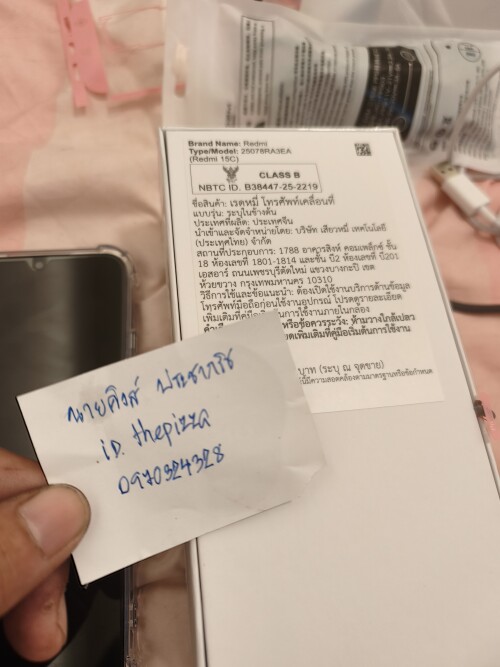 Brand Name: Redmi
Type/Model: 25078RA3EA
(Redmi 15C)
CLASS B
NBTC ID. B38447-25-2219
ชื่อสินค้า: เรดหมี่ โทรศัพท์เคลื่อนที่
แบบรุ่น: ระบุในข้างต้น
ประเทศที่ผลิต: ประเทศจีน
นำเข้าและจัดจำหน่ายโดย: บริษัท เสียวหมี่ เทคโนโลยี
(ประเทศไทย) จำกัด
สถานที่ประกอบการ: 1788 อาคารสิงห์ คอมเพล็กซ์ ชั้น
18 ห้องเลขที่ 1801-1814 และชั้น บี2 ห้องเลขที่ บี201
เอสออาร์ ถนนเพชรบุรีตัดใหม่ แขวงบางกะปิ เขต
ห้วยขวาง กรุงเทพมหานคร 10310
วิธีการใช้และข้อแนะนำ: ต้องเปิดใช้งานบริการด้านข้อมูล
โทรศัพท์มือถือก่อนใช้งานอุปกรณ์ โปรดดูรายละเอียด
เพิ่มเติมที่คู่มือเริ่มต้นการใช้งานภายในกล่อง
หรือข้อควรระวัง: ห้ามวางใกล้เปลว
ดเพิ่มเติมที่คู่มือเริ่มต้นการใช้งาน
บาท (ระบุ ณ จุดขาย)
นี้มีความสอดคล้องตามมาตรฐานหรือข้อกำหนด
นายคิงส์
i.D. thepizza
0970324328